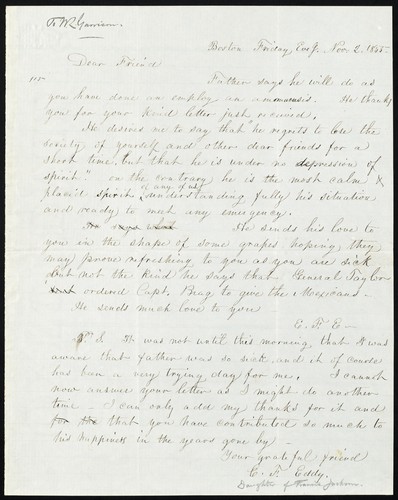 To W L Garrison.
Boston Friday Eve'g. Nov. 2. 1855
Dear Friend
Father says he will do as
you have done an employ an amanuensis. He thanks
you for your kind letter just received.
He desires me to say that he regrets to lose the
society of yourself and other dear friends for a
short time, but that he is under no depression of
spirit" on the contrary he is the most calm &
placid spirit of any of us, understanding fully his situation
and ready to meet any emergency.
He sends his love to
you in the shape of some grapes hoping they
may prove refreshing to you as you are sick
but not the kind he says that General Taylor
ordered Capt. Brag to give the Mexicans.
He sends much love to you
E. F. E
P. S It was not until this morning that I was
aware that father was so sick and it of course
has been a very trying day for me. I cannot
now answer your letter as I might do another
time - I can only add my thanks for it and
that you have contributed so much to
his happiness in the years gone by -
Your grateful friend
E. F. Eddy.
Daughter of Francis Jackson